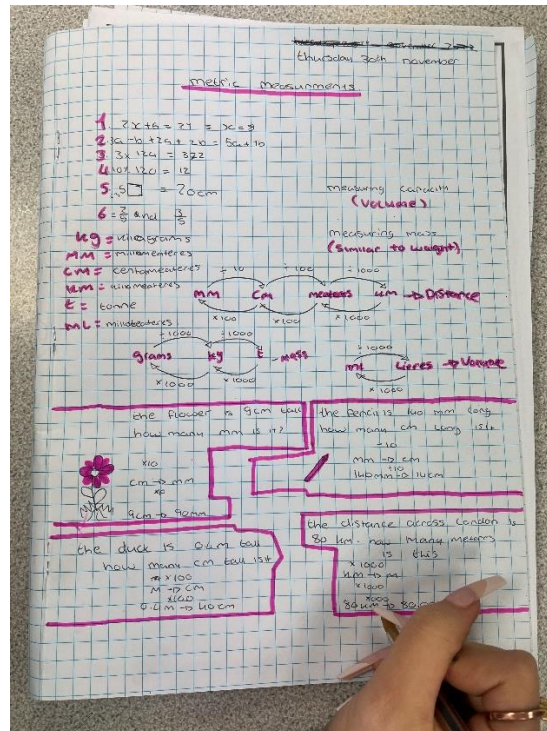 thursday 30th november
metric measurments
1 2x+6=27 = x=9
2 3a-b+2a+2b = 5a+10
3 3x 124 = 372
4 10x 120 = 12
5 .5 = 20cm
6 = and 3/5
measuring capacity
(Volume)
measuring mass
(Similar to weight)
kg = kilograms
MM = millimeateres
CM = centameateres
KM = kilomeateres
t = tonne
ML = millileateres
÷10 ÷100 ÷1000
MM CM meateres KM → Distance
×100 ×100 ×1000
÷1000 ÷1000
grams kg t - mass
×1000 ×1000
÷1000
ml Litres → Volume
×1000
the flower is 9cm tall
how many mm is it?
×10
cm → mm
×10
9cm → 90mm
the pencil is 140 mm long
how many cm long is it
÷10
mm → cm
÷10
140mm → 14cm
the duck is 0.4M tall
how many cm tall is it
×100
M → CM
×100
0.4M → 40cm
the distance across London is
80 km. how many meteres
is this
×1000
KM → M
×1000
80km → 80,